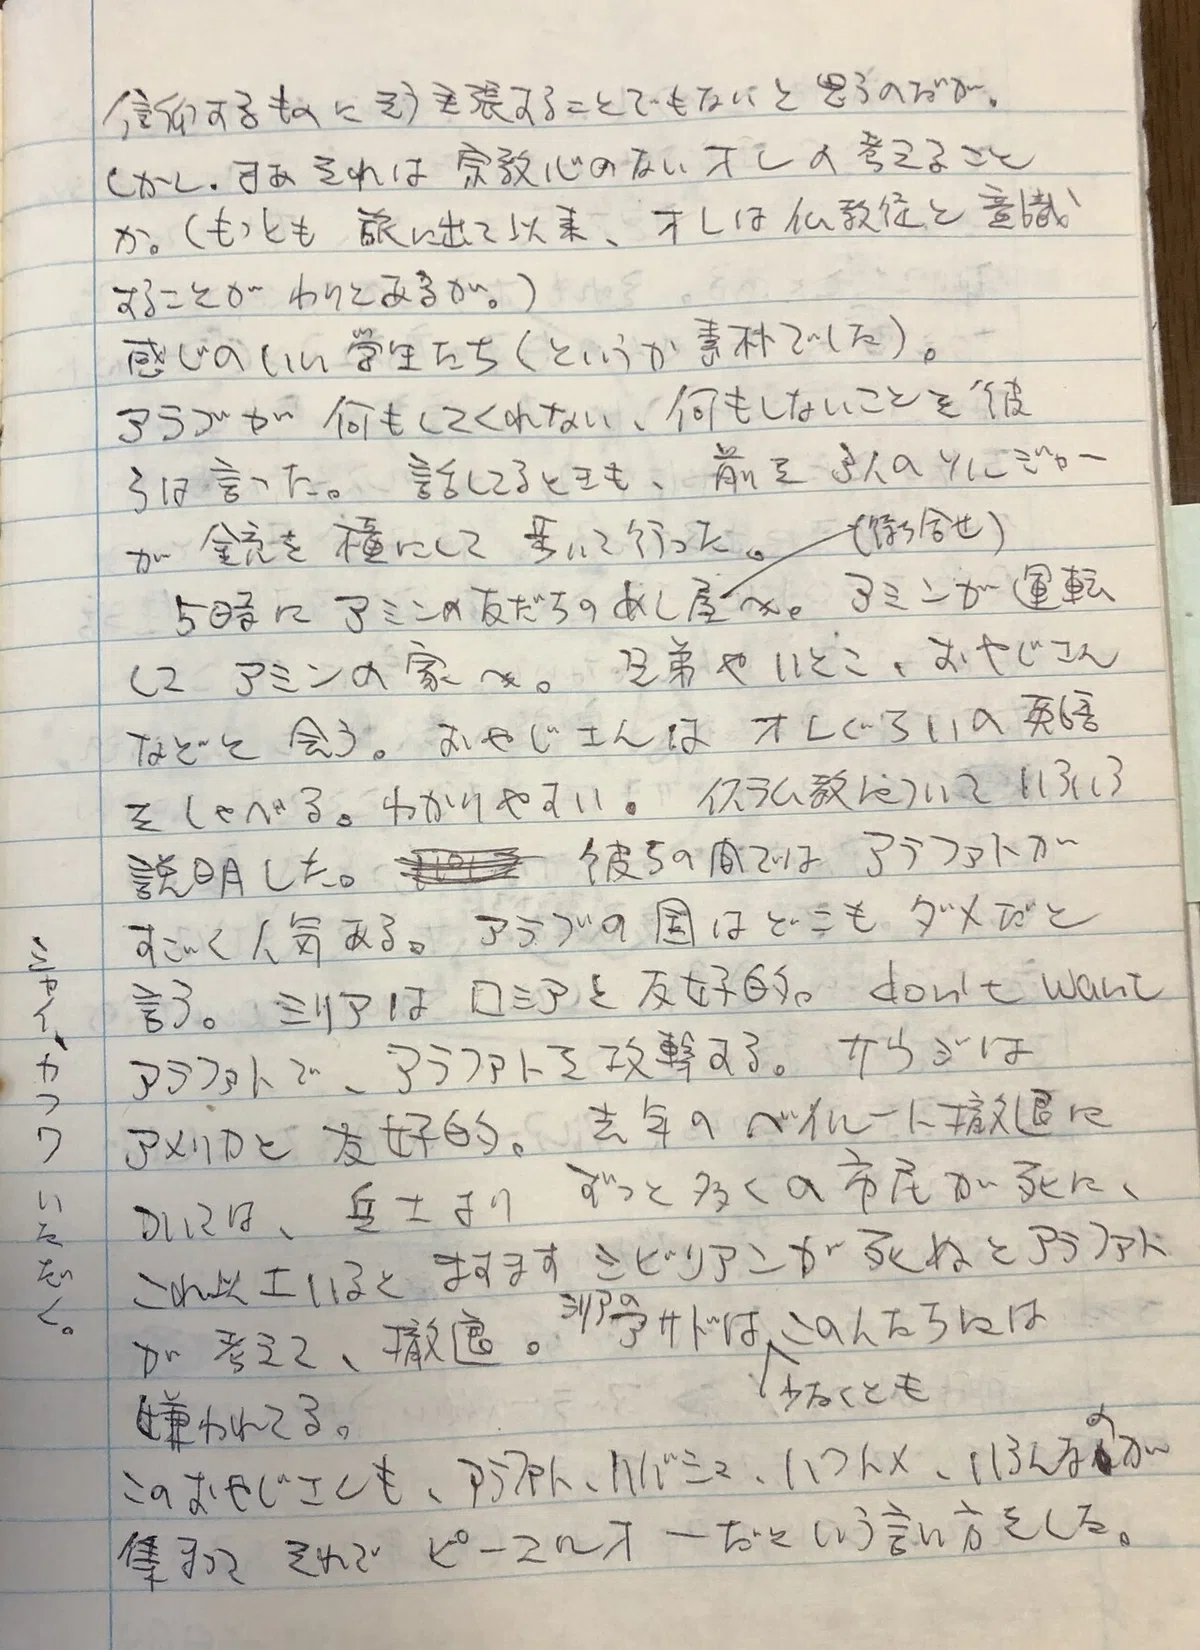 信仰するものにそう主張することでもないと思うのだが。
しかし、まあそれは宗教心のないオレの考えること
か。(もっとも旅に出て以来、オレは仏教徒と意識
することがわりとあるが。)
感じのいい学生たち(というか素朴でした)。
アラブが何もしてくれない、何もしないことを彼
らは言った。話してるときも、前を3人のソルジャー
が銃を横にして歩いて行った。
(待ち合せ)
5時にアミンの友だちのめし屋へ。アミンが運転
してアミンの家へ。兄弟やいとこ、おやじさん
などと会う。おやじさんはオレぐらいの英語
をしゃべる。わかりやすい。イスラム教についていろいろ
説明した。彼らの間ではアラファトが
すごく人気ある。アラブの国はどこもダメだと
言う。シリアはロシアと友好的。don't want
アラファトで、アラファトを攻撃する。サウジは
アメリカと友好的。去年のベイルート撤退に
ついては、兵士よりずっと多くの市民が死に、
これ以上いるとますますシビリアンが死ぬとアラファト
が考えて、撤退。シリアのアサドはこの人たちには
少なくとも
嫌われてる。
このおやじさんも、アラファト、ハバシュ、ハワトメ、いろんなのが
集まってそれでピーエルオーだという言い方をした。
シャイ、カフワいただく。